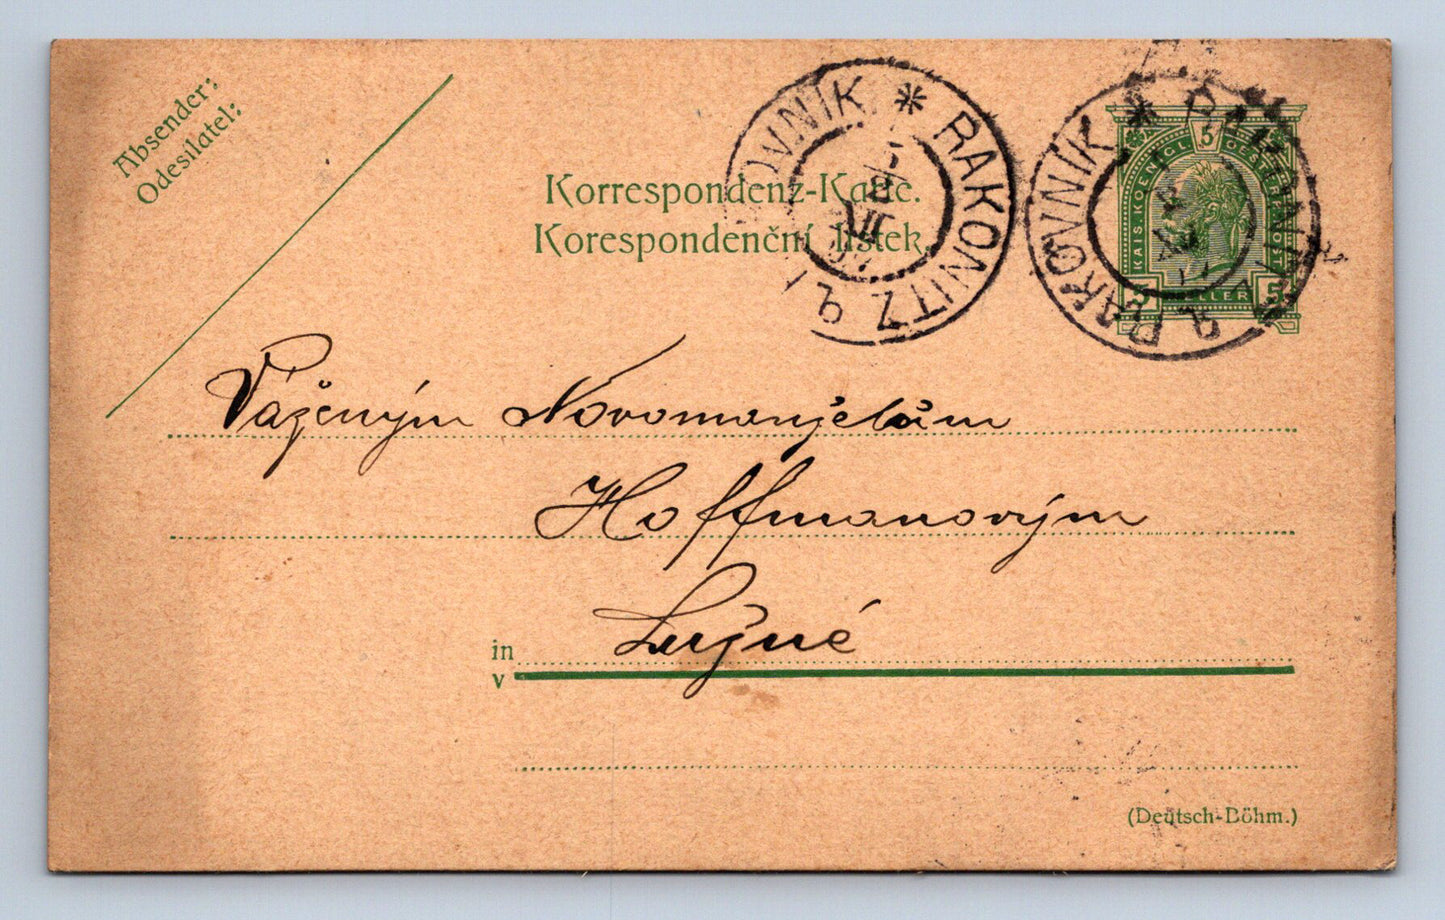 Absender:
Odesílatel:
Korrespondenz-Karte.
Korespondenční lístek.
RAKOVNÍK * RAKONITZ
RAKOVNÍK * RAKONITZ
KAIS. KOENIGL. OESTERR. POST
5
5 HELLER 5
Váženým Novomanželům
Hoffmanovým
in
v
Lužné
(Deutsch-Böhm.)